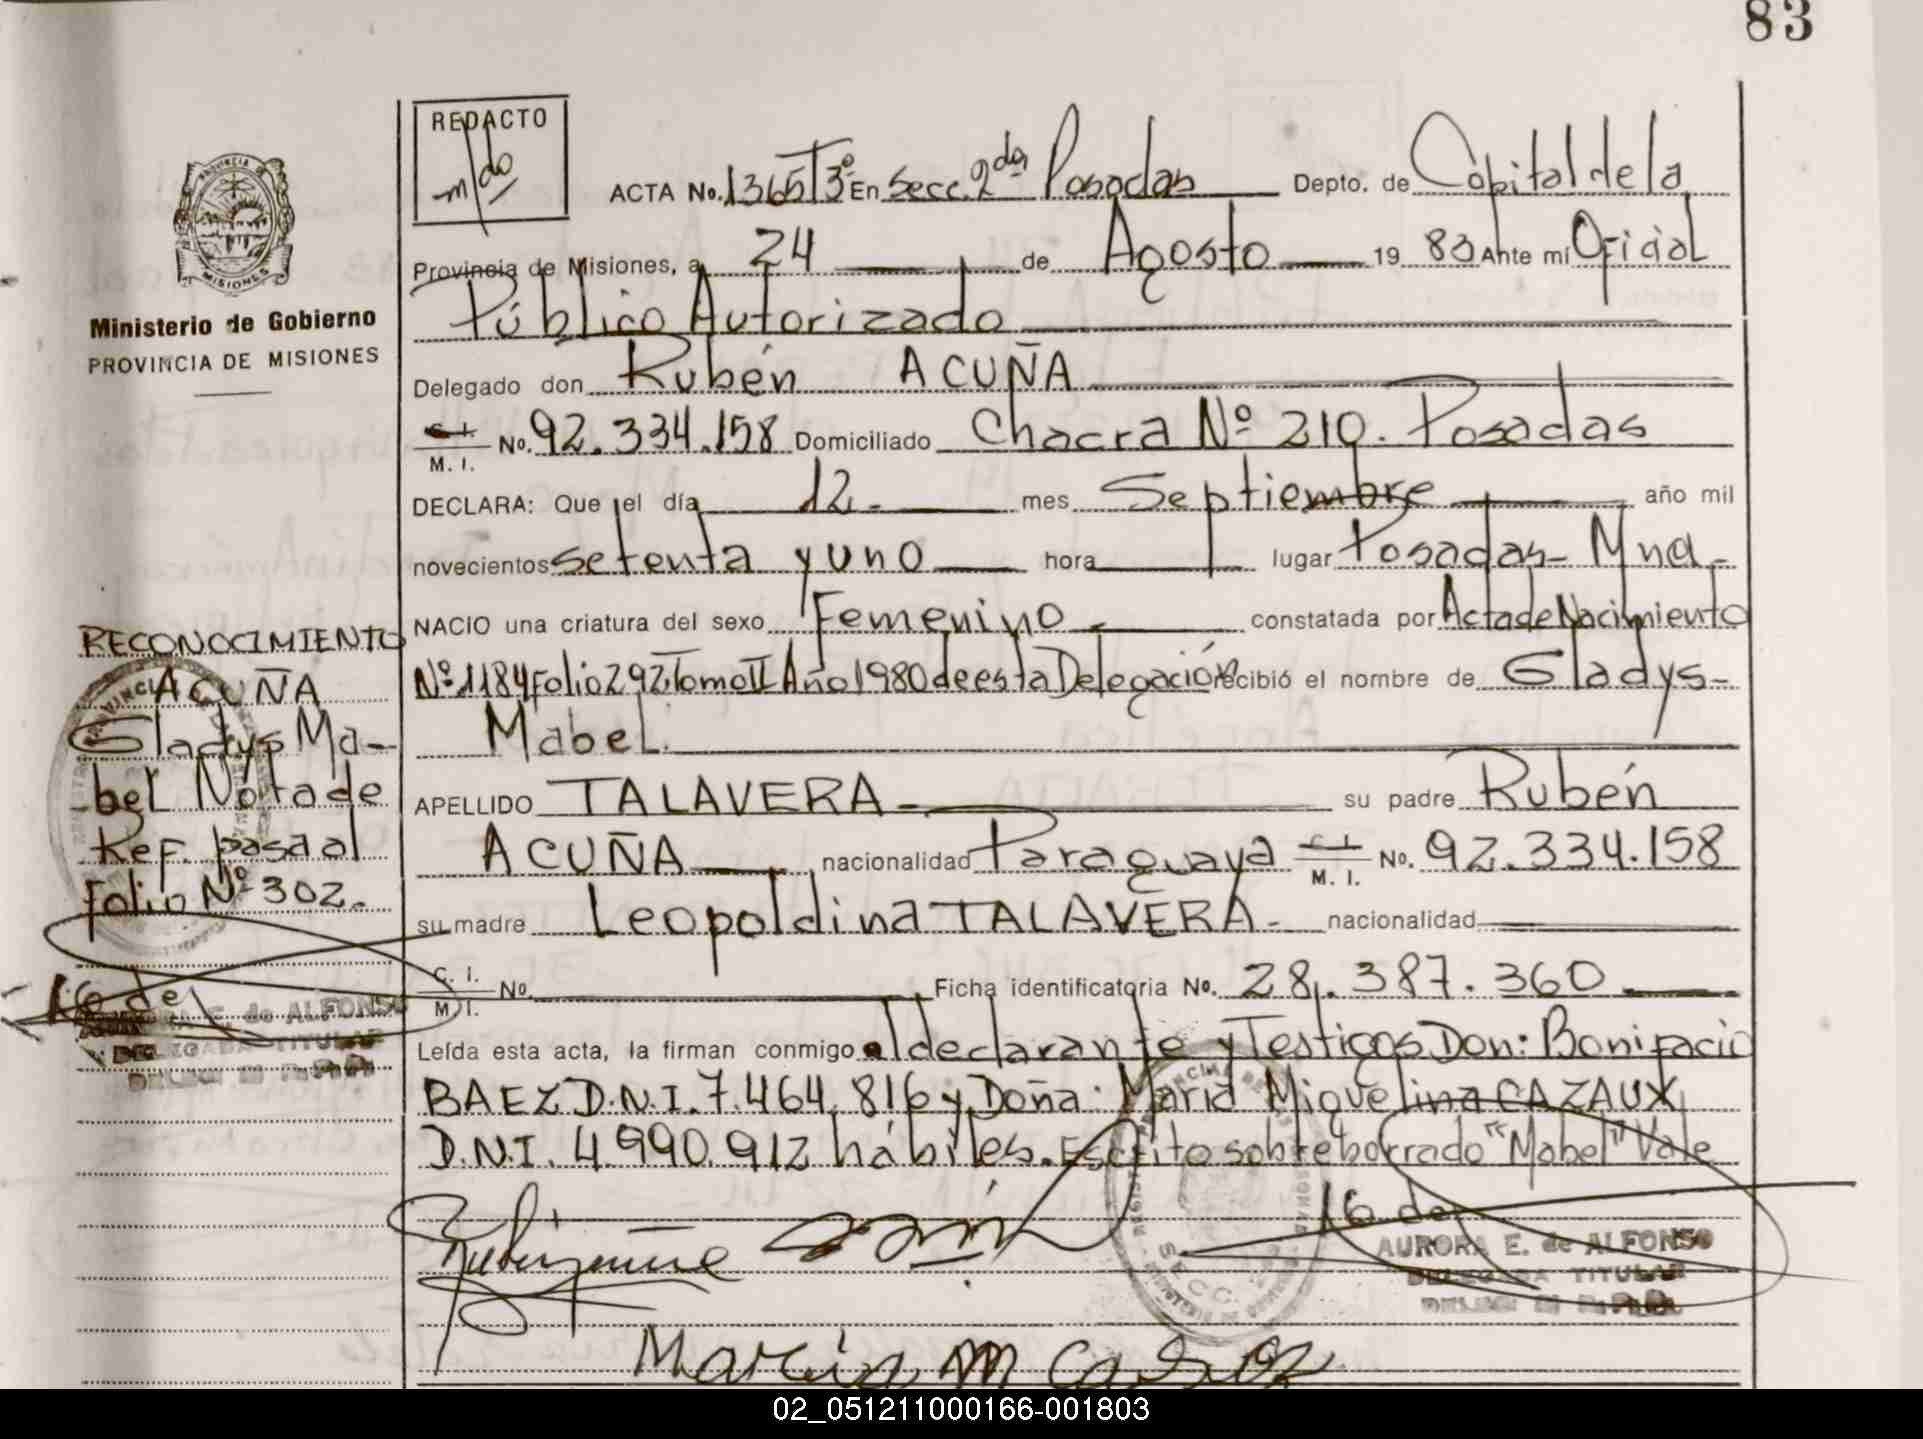 83
REDACTO
m/do
ACTA No. 1365 Tº3º En Secc. 2da Posadas Depto. de Capital de la
Provincia de Misiones, a 24 de Agosto 19 83 Ante mí Oficial
Público Autorizado
PROVINCIA DE
MISIONES
Ministerio de Gobierno
PROVINCIA DE MISIONES
Delegado don Rubén ACUÑA
C. I.
M. I. No. 92.334.158 Domiciliado Chacra Nº 210. Posadas
DECLARA: Que el día 12.- mes Septiembre año mil
novecientos setenta y uno hora lugar Posadas- Mnes.-
NACIO una criatura del sexo Femenino.- constatada por Acta de Nacimiento
Nº 1184 Folio 292 Tomo II Año 1980 de esta Delegación recibió el nombre de Gladys-
Mabel.
APELLIDO TALAVERA.- su padre Rubén
ACUÑA nacionalidad Paraguaya C. I.
M. I. No. 92.334.158
su madre Leopoldina TALAVERA.- nacionalidad
C. I.
M. I. No. Ficha identificatoria No. 28.387.360
Leída esta acta, la firman conmigo el declarante y Testigos Don: Bonifacio
BAEZ D.N.I. 7.464.816 y Doña: María Miquelina CAZAUX
D.N.I. 4.990.912 hábiles. Escrito sobre borrado "Mabel" Vale
16 de
AURORA E. de ALFONSO
DELEGADA TITULAR
SECC. 2da
RECONOCIMIENTO
ACUÑA
Gladys Ma-
bel Nota de
Ref. pasa al
folio Nº 302.
16 de
E. de ALFONSO
DELEGADA TITULAR
02_051211000166-001803